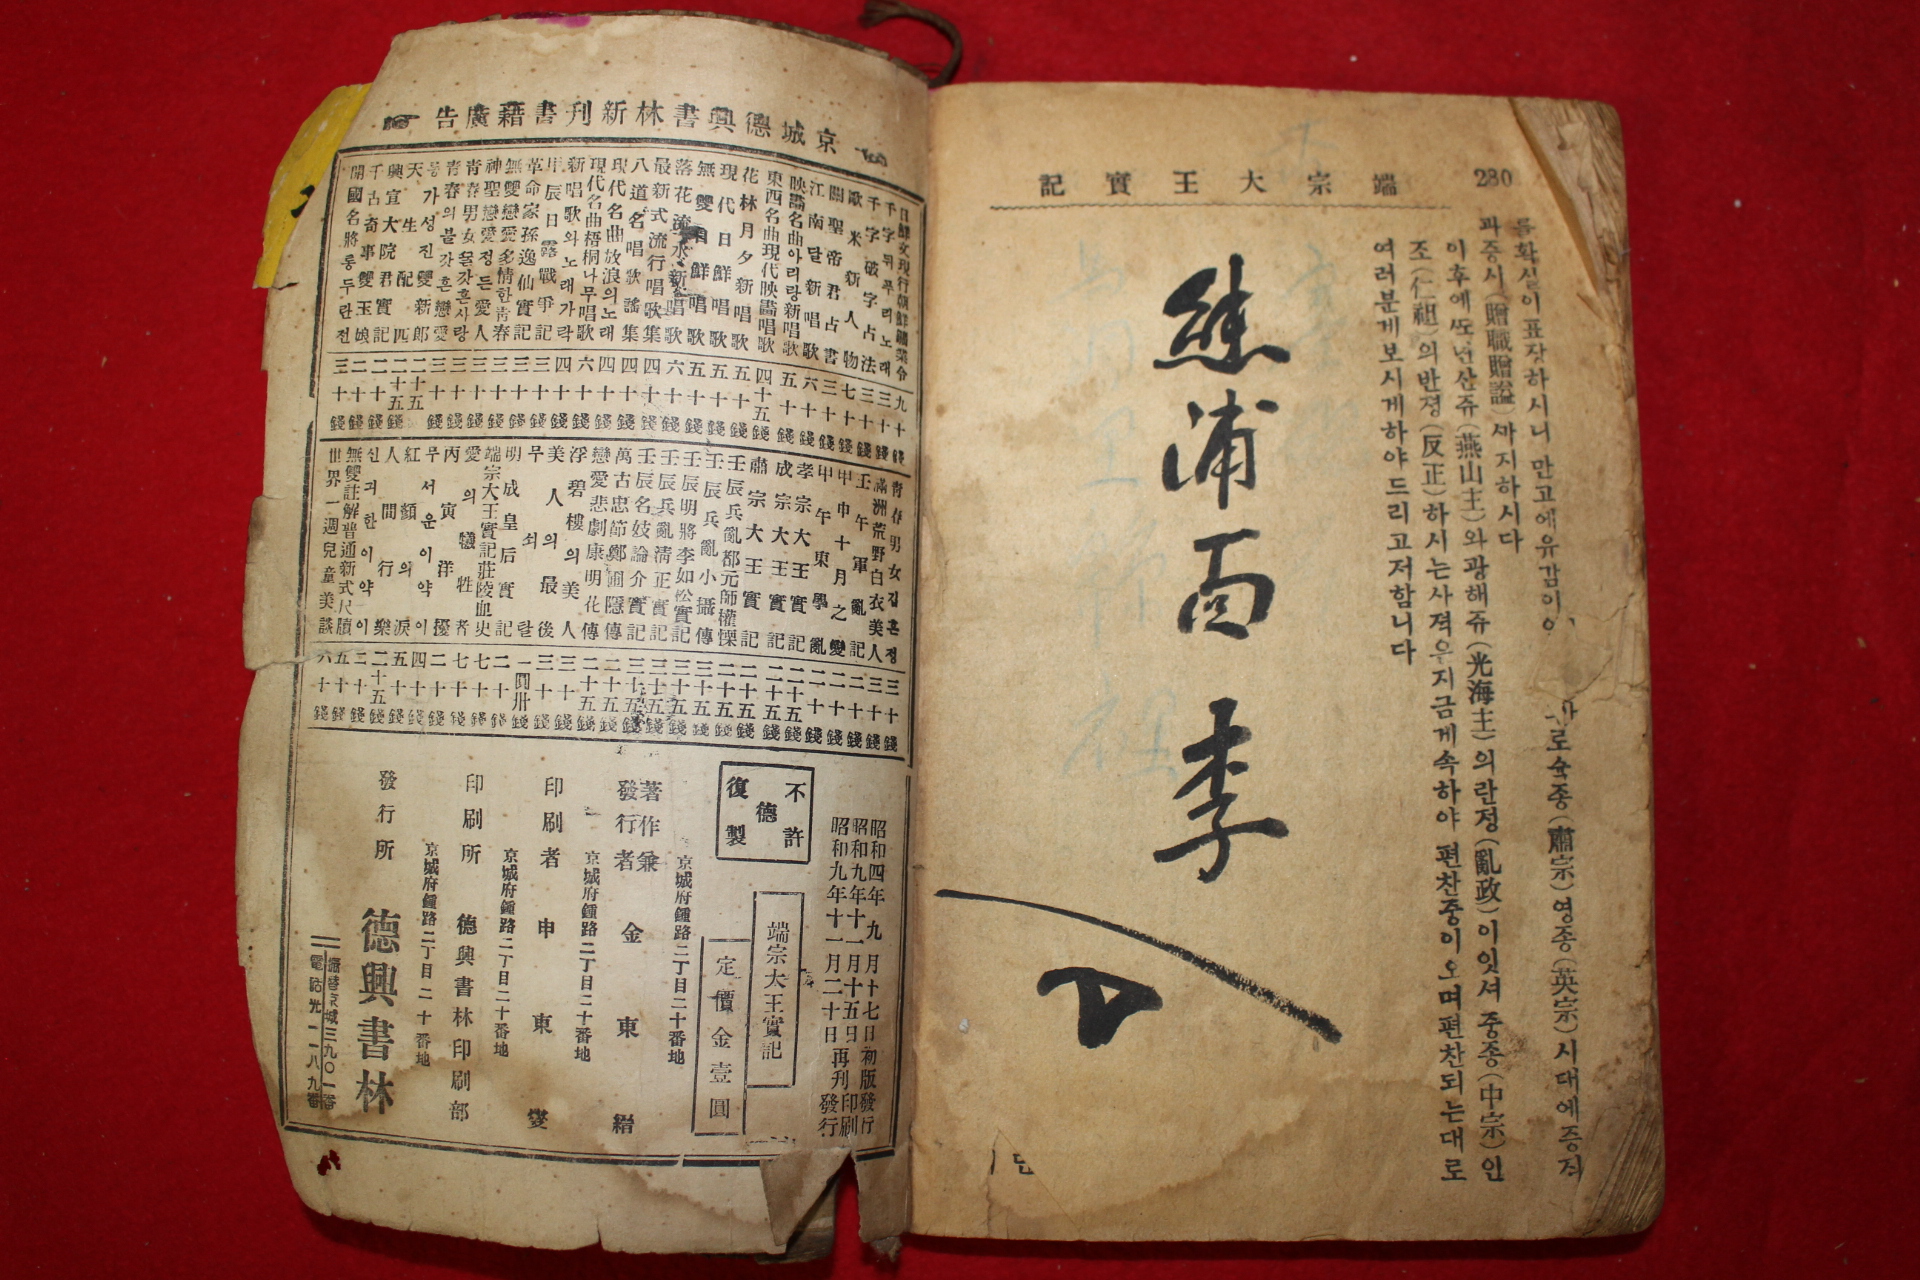 280
端宗大王實記
과증시(贈職贈諡)까지하시다
이후에또년산쥬(燕山主)와광해쥬(光海主)의란정(亂政)이잇셔중종(中宗)인
조(仁祖)의반졍(反正)하시는사젹은지금게속하야편찬중이오며편찬되는대로
여러분게보시게하야드리고저함니다
李
浦
京城德興書林新刊書籍廣告
千字뒤푸리노래 三十錢
千字破字占法 三十錢
歐米新人物 七十錢
關聖帝君占書 三十錢
江南달新唱歌 六十錢
映畵名曲아리랑新唱歌 五十錢
東西名曲現代映畵唱歌 四十五錢
花林月夕新唱歌 五十錢
現代日鮮唱歌 五十錢
無雙日鮮唱歌 五十錢
落花流水新唱歌 六十錢
最新式流行唱歌集 四十錢
八道名唱歌謠集 四十錢
現代名曲放浪의노래 四十錢
現代名曲梧桐나무唱歌 六十錢
新唱歌와노래가락 四十錢
甲辰日露戰爭記 三十錢
革命家孫逸仙實記 三十錢
無雙戀愛多情한靑春 三十錢
神聖戀愛정든愛人 三十錢
靑春男女울긋흔사랑 三十錢
靑春의불갓흔戀愛 三十錢
동가성진雙新郎 二十五錢
天生配匹 二十五錢
興宣大院君實記 二十錢
千古奇事雙玉娘 二十錢
開國名將롱두란전 三十錢
靑春男女길흔정 三十錢
滿洲荒野白衣美人 三十錢
壬午軍亂記 二十錢
甲申十月之變 二十錢
甲午東學亂 二十錢
孝宗大王實記 二十五錢
成宗大王實記 二十五錢
肅宗大王實記 二十五錢
壬辰兵亂都元師權慄 二十五錢
壬辰兵亂小攝傳 三十五錢
壬辰明將李如松實記 三十五錢
壬辰兵亂淸正實記 三十五錢
壬辰名妓論介實記 三十五錢
萬古忠節鄭圃隱傳 二十五錢
戀愛悲劇康明花傳 二十五錢
浮碧樓의美人 三十錢
美人의最後 三十錢
무쇠탈 一圓卅錢
明成皇后實記 二十錢
端宗大王實記莊陵血史 七十錢
愛의犧牲者 七十錢
丙寅洋擾 二十錢
무서운이약이 四十錢
紅顏의淚 五十錢
人間行樂 二十五錢
신긔한이약이 二十錢
無雙註解普通新式尺牘 五十錢
世界一週兒童美談 六十錢
昭和四年九月十七日初版發行
昭和九年十一月十五日印刷
昭和九年十一月二十日再刊發行
不許
德
復製
端宗大王實記
定價金壹圓
京城府鍾路二丁目二十番地
著作兼
發行者 金東縉
京城府鍾路二丁目二十番地
印刷者 申東燮
京城府鍾路二丁目二十番地
印刷所 德興書林印刷部
京城府鍾路二丁目二十番地
發行所 德興書林
振替京城三九〇一番
電話光一一八九番